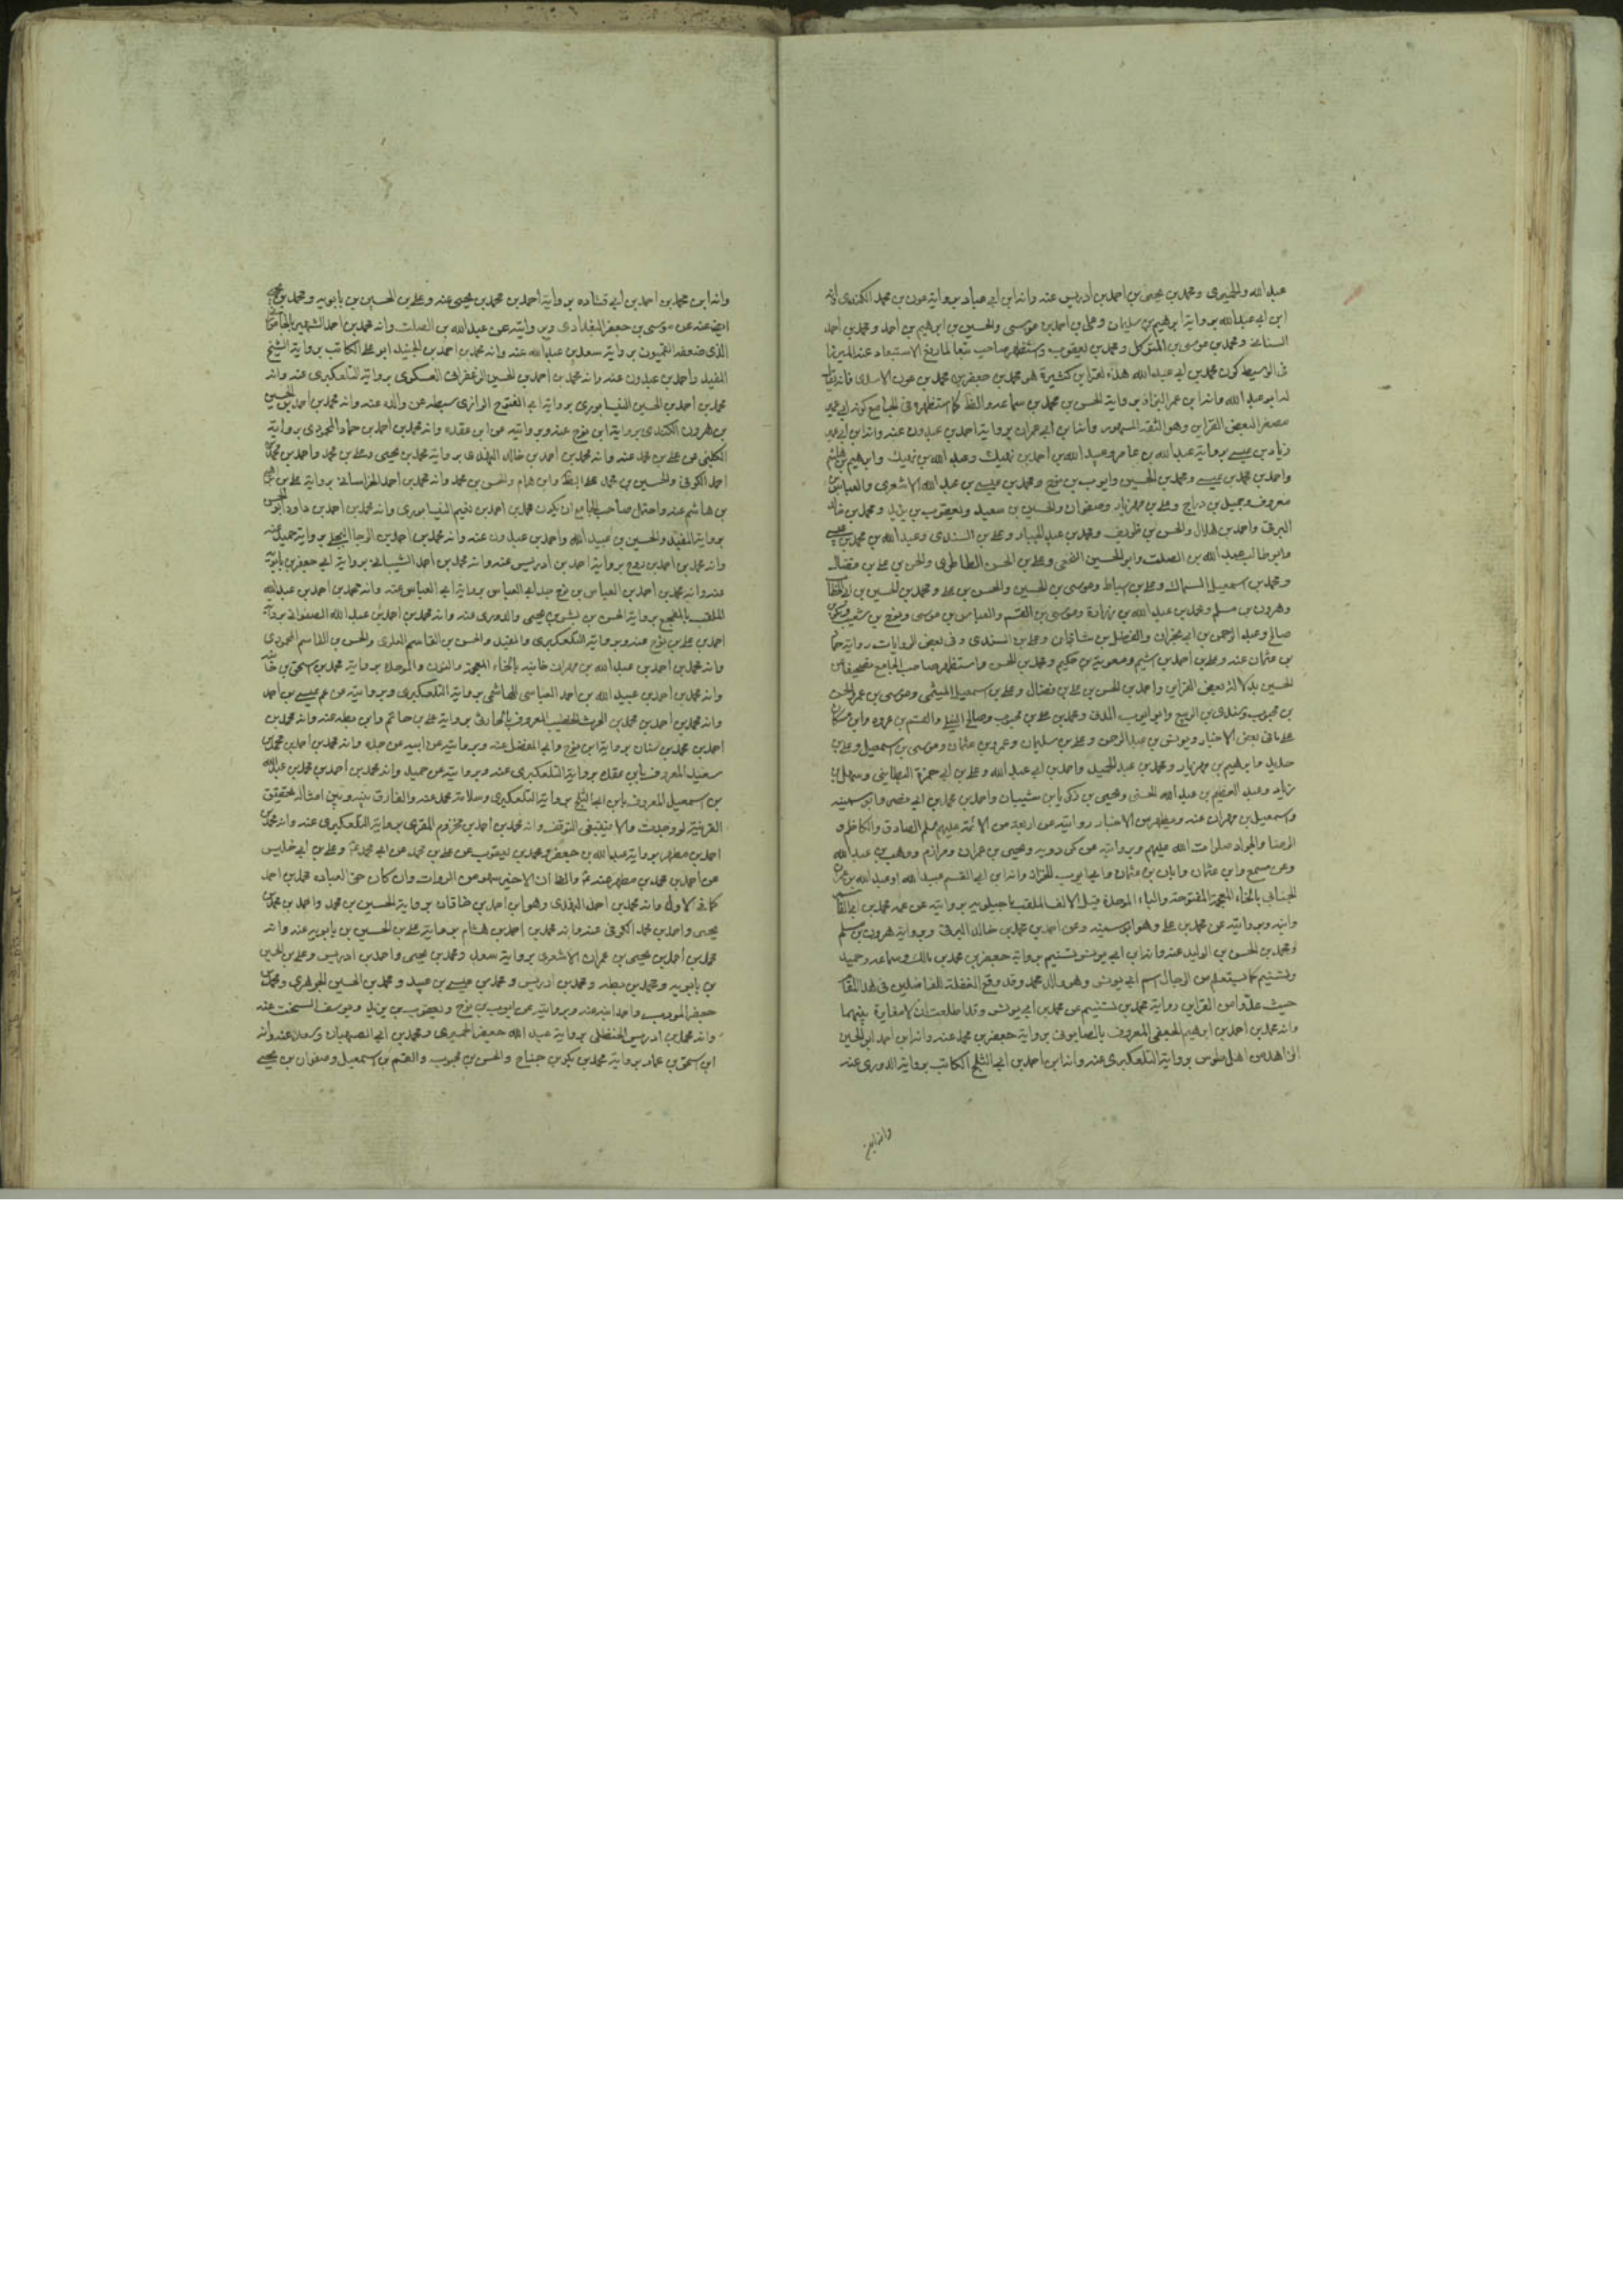 عبد الله والحميرى ومحمد بن يحيى بن احمد بن ادريس عنه وانه ابن ابى عباد برواية عون بن محمد الكندى وانه
ابن ابى عبد الله برواية ابرهيم بن سليمان وعلى بن احمد بن موسى والحسين بن ابرهيم بن احمد ومحمد بن احمد
السنانى ومحمد بن موسى بن المتوكل ومحمد بن يعقوب واستظهر صاحب تبعا لما رفع الاستبعاد عند الميرزا
فى الوسيط كون محمد بن ابى عبد الله هذا لقراين كثيرة هو محمد بن جعفر بن محمد بن عون الاسدى فانه يقال
له ابو عبد الله وانه ابن عمر البزاز برواية الحسن بن محمد بن سماعه والظ كما استظهره فى الجامع كونه ابى عمير
مصغرا لبعض القراين وهو الثقه المشهور وانه ابن ابى عمران برواية احمد بن عبدون عنه وانه ابن ابى عمير
زياد بن عيسى برواية عبد الله بن عامر وعبيد الله بن احمد بن نهيك وعبد الله بن نهيك وابرهيم بن هاشم
واحمد بن محمد بن عيسى ومحمد بن الحسين وايوب بن نوح ومحمد بن عيسى بن عبد الله الاشعرى والعباس بن
معروف وجميل بن دراج وعلى بن مهزيار وصفوان والحسين بن سعيد ويعقوب بن يزيد ومحمد بن خالد
البرقى واحمد بن هلال والحسن بن ظريف ومحمد بن عبد الجبار وعلى بن السندى وعبد الله بن محمد بن عيسى
وابو طالب عبد الله بن الصلت وابو الحسين النخعى وعلى بن الحسن الطاطرى والحسن بن على بن فضال
ومحمد بن اسمعيل السماك وعلى بن اسباط وموسى بن الحسين والحسن بن على ومحمد بن الحسين بن ابى الخطاب
وهرون بن مسلم ومحمد بن عبد الله بن زرارة وموسى بن القسم والعباس بن موسى ونوح بن شعيب
صالح وعبد الرحمن بن ابى نجران والفضل بن شاذان وعلى بن السندى وفى بعض الروايات رواية حماد
بن عثمان عنه وعلى بن احمد بن اشيم ومعوية بن حكيم ومحمد بن الحسن واستظهر صاحب الجامع
الحسين بدلالة بعض القراين واحمد بن الحسن بن على بن فضال وعلى بن اسمعيل الميثمى وموسى بن عمر والحسن
بن محبوب وسندى بن الربيع وابو ايوب المدنى ومحمد بن على بن محبوب وصالح النيلى والقسم بن عروه وابن مسكان
على ما فى بعض الاخبار ويونس بن عبد الرحمن وعلى بن سليمان وعمرو بن عثمان وموسى بن اسمعيل وعلى بن
حديد وابرهيم بن مهزيار ومحمد بن عبد الحميد واحمد بن ابى عبد الله وعلى بن ابى حمزة البطاينى وسهل بن
زياد وعبد العظيم بن عبد الله الحسنى ويحيى بن زكريا بن شيبان واحمد بن محمد بن ابى نصر وابو سمينه
واسمعيل بن مهران عنه ويظهر من الاخبار روايته عن اربعة من الائمة عليهم السلام الصادق والكاظم و
الرضا والجواد صلوات الله عليهم وبروايته عن كردويه ويحيى بن عمران ومرازم ووهب بن عبد الله
وعن مسمع وابن عثمان وابان بن عثمان وابى ايوب الخزاز وانه ابن ابى القسم عبيد الله او عبد الله بن عمران
الجنابى بالخاء المعجمة المفتوحة والباء الموحدة قبل الالف الملقب ماجيلويه بروايته عن عمه محمد بن ابى القاسم
وابنه وبروايته عن محمد بن على وهو ابو سمينه وعن احمد بن محمد بن خالد البرقى وبرواية هرون بن مسلم
ومحمد بن الحسن بن الوليد عنه وانه ابن ابى يونس تسنيم برواية جعفر بن محمد بن مالك وسماعه وحميد
وتسنيم كما يستعلم من الرجال اسم ابى يونس وهو والد محمد وقد وقع الغفلة للفاضلين فى هذا المقام
حيث عدّوا من القراين رواية محمد بن تسنيم عن محمد بن ابى يونس وقد اطلعت ان لا مغايرة بينهما
وانه محمد بن احمد بن ابرهيم الجعفى المعروف بالصابونى برواية جعفر بن محمد عنه وانه ابن احمد ابو الحسين
الزاهد من اهل طوس برواية التلعكبرى عنه وانه ابن احمد بن ابى الثلج الكاتب برواية الدورى عنه
وانه ابن
وانه ابن محمد بن احمد بن ابى قتاده برواية احمد بن محمد بن يحيى عنه وعلى بن الحسين بن بابويه ومحمد بن يحيى
ايض عنه عن موسى بن جعفر البغدادى وبروايته عن عبد الله بن الصلت وانه محمد بن احمد الشهير بالجامورانى
الذى ضعفه القميون برواية سعد بن عبد الله عنه وانه محمد بن احمد بن الجنيد ابو على الكاتب برواية الشيخ
المفيد واحمد بن عبدون عنه وانه محمد بن احمد بن الحسين الزعفرانى العسكرى برواية التلعكبرى عنه وانه
محمد بن احمد بن الحسين النيسابورى برواية ابى الفتوح الرازى سبطه عن والده عنه وانه محمد بن احمد بن الحسين
بن هرون الكندى برواية ابن نوح عنه وبروايته عن ابن عقده وانه محمد بن احمد بن حماد المحمودى برواية
الكلينى عن على بن محمد عنه وانه محمد بن احمد بن خالد النهدى برواية محمد بن يحيى وعلى بن محمد واحمد بن محمد بن
احمد الكوفى والحسين بن محمد على الظ وابن همام والحسن بن محمد وانه محمد بن احمد الخراسانى برواية على بن ابرهيم
بن هاشم عنه واحتمل صاحب الجامع ان يكون محمد بن احمد بن نعيم النيسابورى وانه محمد بن احمد بن داود ابو الحسن
برواية المفيد والحسين بن عبيد الله واحمد بن عبدون عنه وانه محمد بن احمد بن الرجا البجلى برواية حميد عنه
وانه محمد بن احمد بن روح برواية احمد بن ادريس عنه وانه محمد بن احمد الشيبانى برواية ابى جعفر بن بابويه
عنه وانه محمد بن احمد بن العباس بن نوح جد ابى العباس برواية ابى العباس عنه وانه محمد بن احمد بن عبد الله
الملقب بالمفجع برواية الحسن بن بشر بن يحيى والدورى عنه وانه محمد بن احمد بن عبد الله الصفوانى برواية
احمد بن على بن نوح عنه وبرواية التلعكبرى والمفيد والحسن بن القاسم العلوى والحسن بن القاسم المحمدى
وانه محمد بن احمد بن عبد الله بن مهران خانبه بالخاء المعجمة والنون والموحدة برواية محمد بن اسحق بن خانبه
وانه محمد بن احمد بن عبيد الله بن احمد العباسى الهاشمى برواية التلعكبرى وبروايته عن عم عيسى بن احمد
وانه محمد بن احمد بن محمد بن الحرث الخطيب المعروف بالحارثى برواية على بن حاتم وابن بطه عنه وانه محمد بن
احمد بن محمد بن سنان برواية ابن نوح وابى المفضل عنه وبروايته عن ابيه عن جده وانه محمد بن احمد بن محمد بن
سعيد المعروف بابن عقده برواية التلعكبرى عنه وبروايته عن حميد وانه محمد بن احمد بن محمد بن عبد الله
بن اسمعيل المعروف بابن ابى الثلج برواية التلعكبرى وسلامة بن محمد عنه والفارق بينه وبين امثاله بتحقيق
القرينة لو وجدت والا فينبغى التوقف وانه محمد بن احمد بن مخزوم المقرى برواية التلعكبرى عنه وانه محمد بن
احمد بن مطهر برواية عبد الله بن جعفر ومحمد بن يعقوب عن على بن محمد عن ابى محمد عه وعلى بن ابى خليس
عن احمد بن محمد بن مطهر عنه عه والظ ان الاخير سهو من الروات وان كان حق العباده محمد بن احمد
كما فى الاول وانه محمد بن احمد النهدى وهو ابن احمد بن خاقان برواية الحسين بن محمد واحمد بن محمد بن
يحيى واحمد بن محمد الكوفى عنه وانه محمد بن احمد بن هشام برواية على بن الحسين بن بابويه عنه وانه
محمد بن احمد بن يحيى بن عمران الاشعرى برواية سعد ومحمد بن يحيى واحمد بن ادريس وعلى بن الحسين
بن بابويه ومحمد بن بطه ومحمد بن ادريس ومحمد بن عيسى بن عبيد ومحمد بن الحسين الجوهرى ومحمد بن
جعفر المودب واحمد ابنه عنه وبروايته عن ايوب بن نوح ويعقوب بن يزيد ويوسف السخت عنه
وانه محمد بن ادريس الحنظلى برواية عبد الله جعفر الحميرى ومحمد بن ابى الصهبان وسعد عنه وانه
ابن اسحق بن عمار برواية محمد بن بكر بن جناح والحسن بن محبوب والقسم بن اسمعيل وصفوان بن يحيى